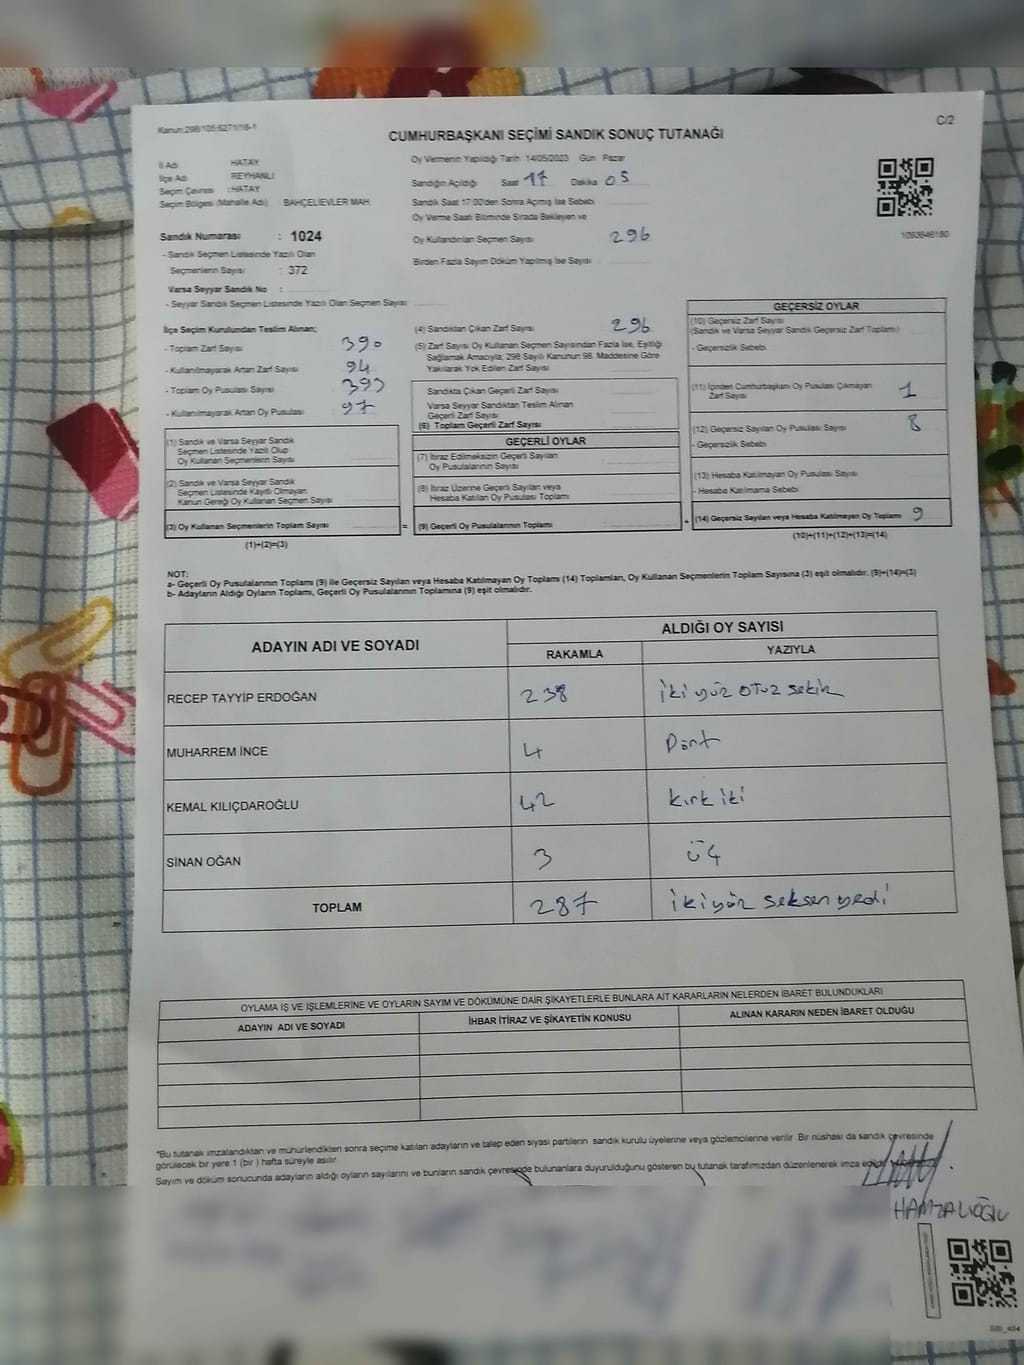 Kanun:298/105-6271/18-1
C/2
CUMHURBAŞKANI SEÇİMİ SANDIK SONUÇ TUTANAĞI
İl Adı HATAY
İlçe Adı REYHANLI
Seçim Çevresi :HATAY
Seçim Bölgesi (Mahalle Adı) BAHÇELİEVLER MAH.
Oy Vermenin Yapıldığı Tarih 14/05/2023 Gün Pazar
Sandığın Açıldığı Saat 17 Dakika 05
Sandık Saat 17:00'den Sonra Açımış İse Sebebi
Oy Verme Saati Bitiminde Sırada Bekleyen ve
Oy Kullandırılan Seçmen Sayısı 296
Birden Fazla Sayım Döküm Yapılmış İse Sayısı
1093646180
Sandık Numarası : 1024
- Sandık Seçmen Listesinde Yazılı Olan
Seçmenlerin Sayısı : 372
Varsa Seyyar Sandık No :
- Seyyar Sandık Seçmen Listesinde Yazılı Olan Seçmen Sayısı
İlçe Seçim Kurulundan Teslim Alınan;
- Toplam Zarf Sayısı 390
- Kullanılmayarak Artan Zarf Sayısı 94
- Toplam Oy Pusulası Sayısı 393
- Kullanılmayarak Artan Oy Pusulası 97
(1) Sandık ve Varsa Seyyar Sandık
Seçmen Listesinde Yazılı Olup
Oy Kullanan Seçmenlerin Sayısı
(2) Sandık ve Varsa Seyyar Sandık
Seçmen Listesinde Kayıtlı Olmayan
Kanun Gereği Oy Kullanan Seçmen Sayısı
(3) Oy Kullanan Seçmenlerin Toplam Sayısı =
(1)+(2)=(3)
(4) Sandıktan Çıkan Zarf Sayısı 296
(5) Zarf Sayısı Oy Kullanan Seçmen Sayısından Fazla İse, Eşitliği
Sağlamak Amacıyla, 298 Sayılı Kanunun 98. Maddesine Göre
Yakılarak Yok Edilen Zarf Sayısı
Sandıkta Çıkan Geçerli Zarf Sayısı
Varsa Seyyar Sandıktan Teslim Alınan
Geçerli Zarf Sayısı
(6) Toplam Geçerli Zarf Sayısı
GEÇERLİ OYLAR
(7) İtiraz Edilmeksizin Geçerli Sayılan
Oy Pusulalarının Sayısı
(8) İtiraz Üzerine Geçerli Sayılan veya
Hesaba Katılan Oy Pusulası Toplamı
(9) Geçerli Oy Pusulalarının Toplamı +
GEÇERSİZ OYLAR
(10) Geçersiz Zarf Sayısı
(Sandık ve Varsa Seyyar Sandık Geçersiz Zarf Toplamı)
- Geçersizlik Sebebi
(11) İçinden Cumhurbaşkanı Oy Pusulası Çıkmayan
Zarf Sayısı 1
(12) Geçersiz Sayılan Oy Pusulası Sayısı 8
- Geçersizlik Sebebi
(13) Hesaba Katılmayan Oy Pusulası Sayısı
- Hesaba Katılmama Sebebi
(14) Geçersiz Sayılan veya Hesaba Katılmayan Oy Toplamı 9
(10)+(11)+(12)+(13)=(14)
NOT:
a- Geçerli Oy Pusulalarının Toplamı (9) ile Geçersiz Sayılan veya Hesaba Katılmayan Oy Toplamı (14) Toplamları, Oy Kullanan Seçmenlerin Toplam Sayısına (3) eşit olmalıdır. (9)+(14)=(3)
b- Adayların Aldığı Oyların Toplamı, Geçerli Oy Pusulalarının Toplamına (9) eşit olmalıdır.
ADAYIN ADI VE SOYADI ALDIĞI OY SAYISI
RAKAMLA YAZIYLA
RECEP TAYYİP ERDOĞAN 238 iki yüz otuz sekiz
MUHARREM İNCE 4 Dört
KEMAL KILIÇDAROĞLU 42 kırk iki
SİNAN OĞAN 3 üç
TOPLAM 287 iki yüz seksen yedi
OYLAMA İŞ VE İŞLEMLERİNE VE OYLARIN SAYIM VE DÖKÜMÜNE DAİR ŞİKAYETLERLE BUNLARA AİT KARARLARIN NELERDEN İBARET BULUNDUKLARI
ADAYIN ADI VE SOYADI İHBAR İTİRAZ VE ŞİKAYETİN KONUSU ALINAN KARARIN NEDEN İBARET OLDUĞU
*Bu tutanak imzalandıktan ve mühürlendikten sonra seçime katılan adayların ve talep eden siyasi partilerin sandık kurulu üyelerine veya gözlemcilerine verilir. Bir nüshası da sandık çevresinde
görülecek bir yere 1 (bir ) hafta süreyle asılır.
Sayım ve döküm sonucunda adayların aldığı oyların sayılarını ve bunların sandık çevresinde bulunanlara duyurulduğunu gösteren bu tutanak tarafımızdan düzenlenerek imza
HAMZALIOĞLU